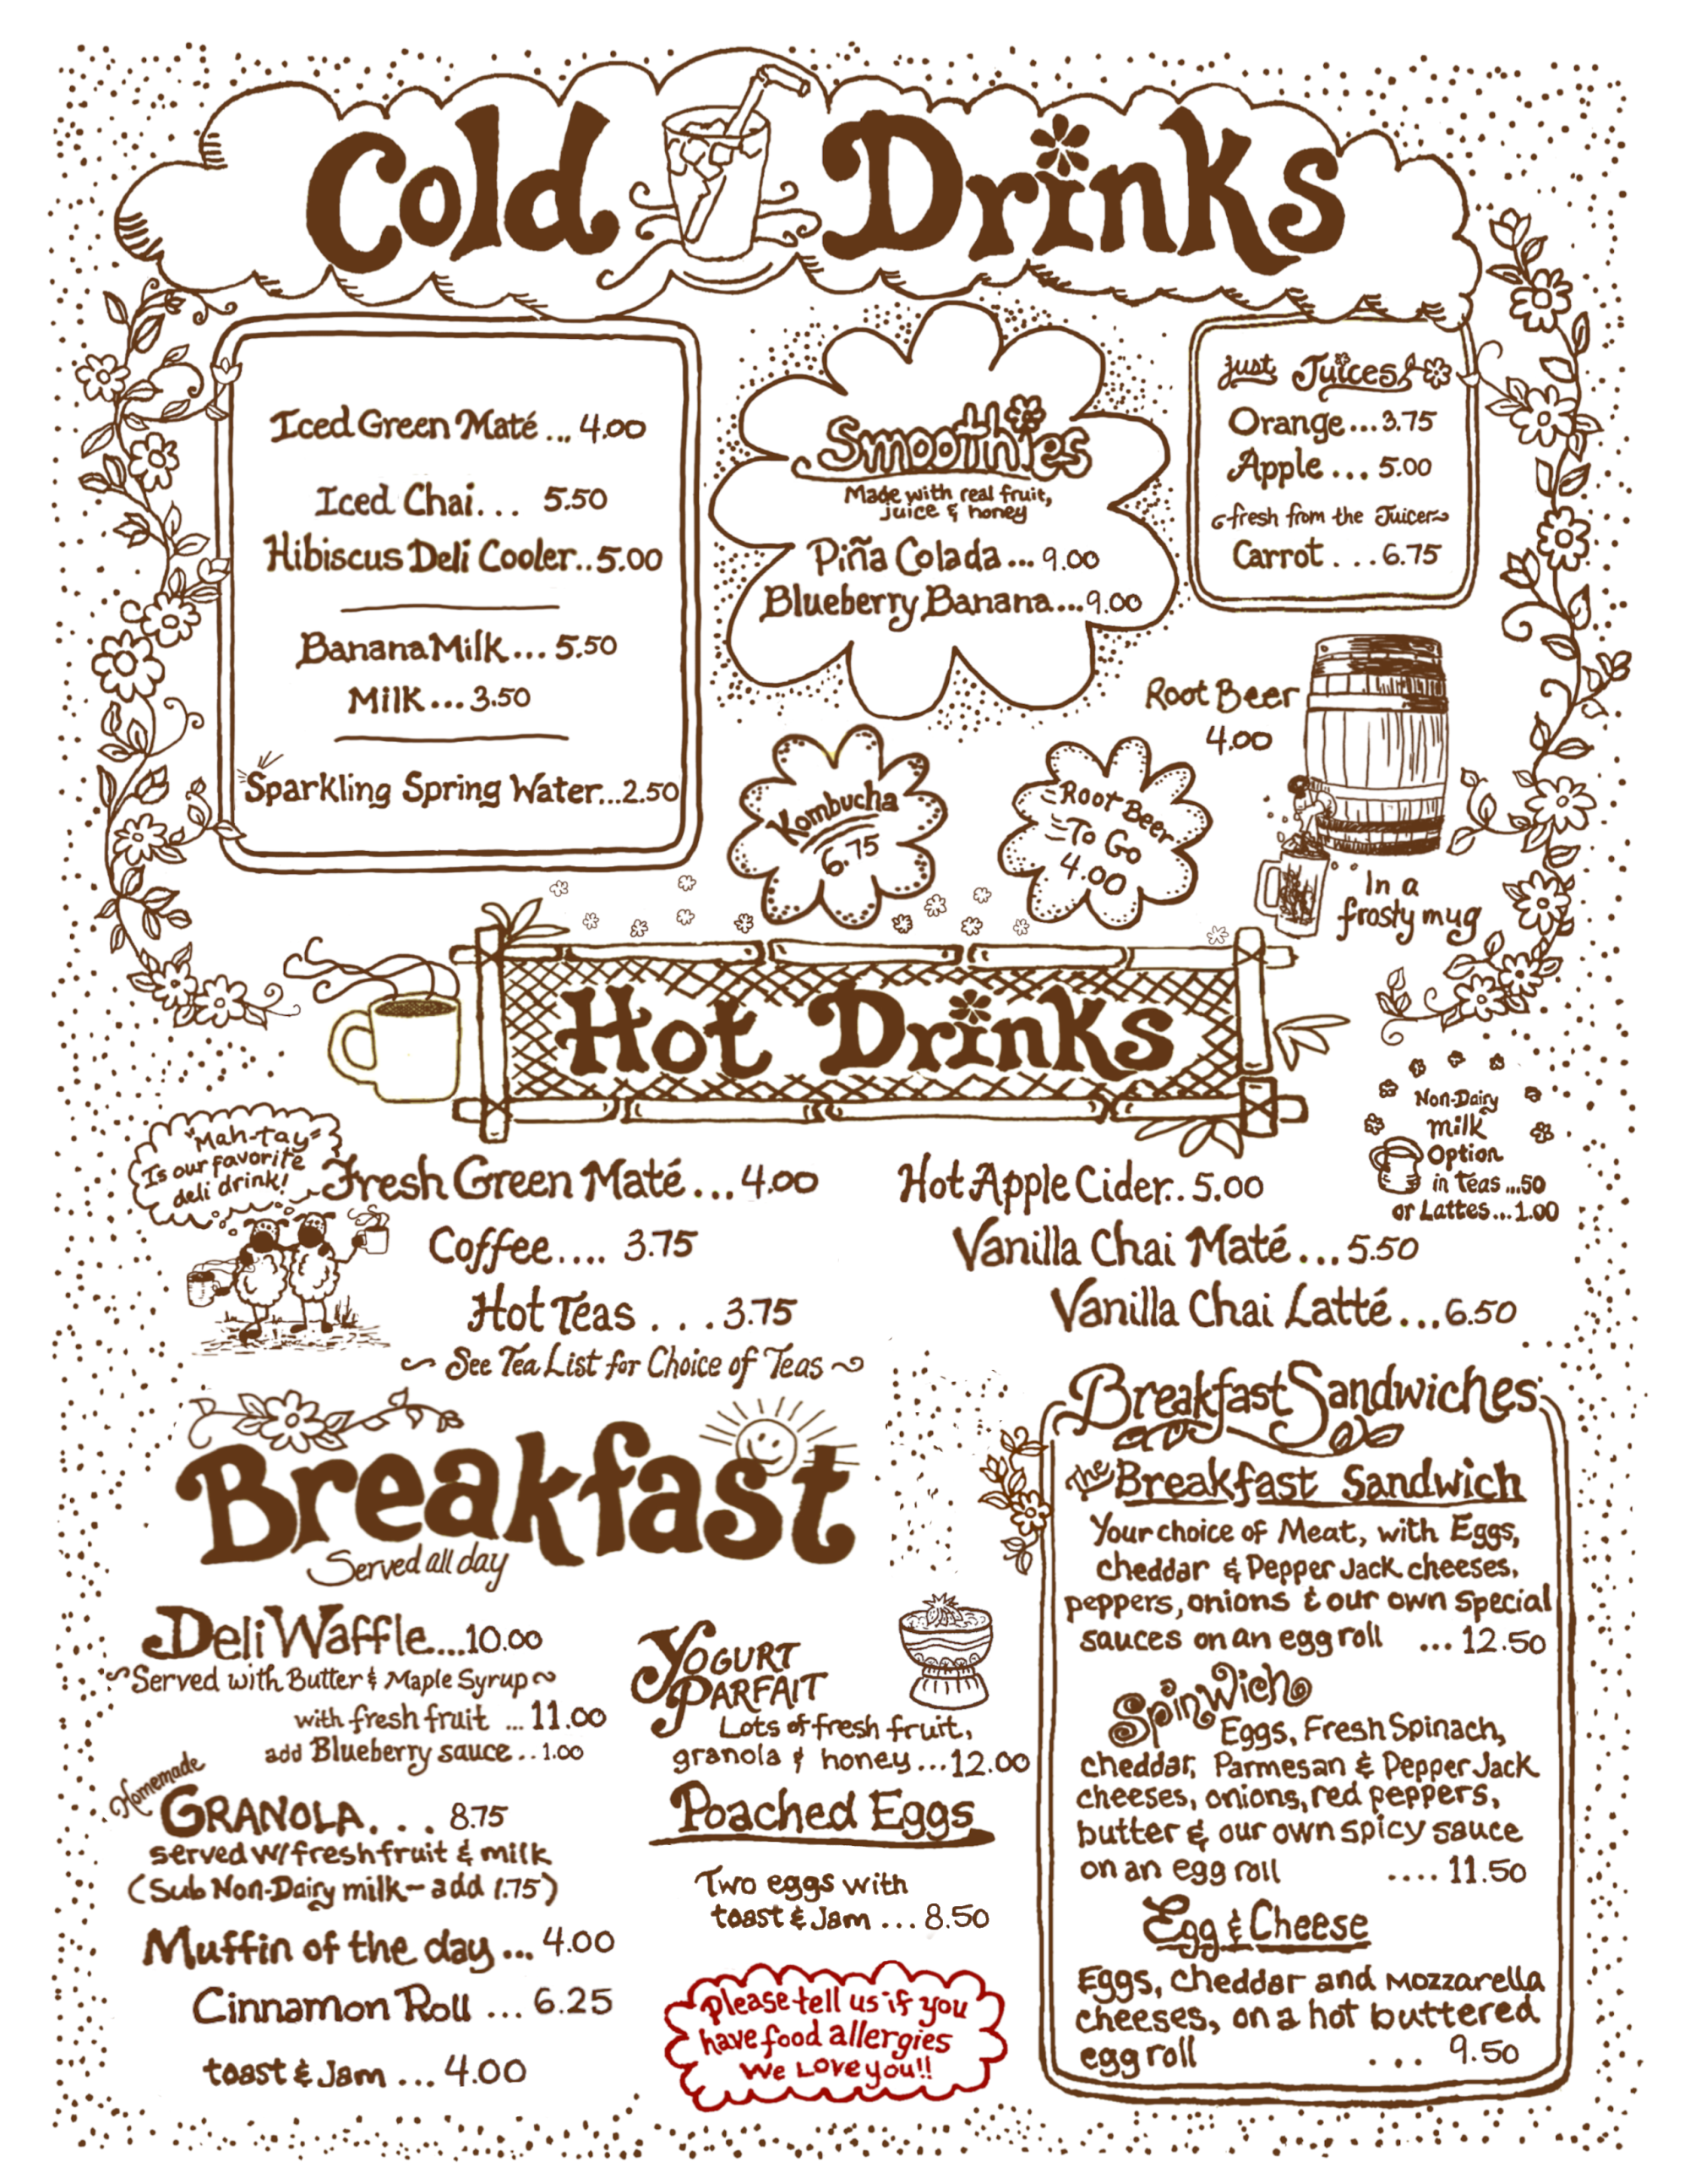 Cold Drinks
Iced Green Maté ... 4.00
Iced Chai... 5.50
Hibiscus Deli Cooler..5.00
Banana Milk... 5.50
Milk...3.50
Sparkling Spring Water...2.50
Smoothies
Made with real fruit,
juice & honey
Piña Colada... 9.00
Blueberry Banana...9.00
just Juices
Orange...3.75
Apple... 5.00
fresh from the Juicer
Carrot...6.75
Root Beer
4.00
In a
frosty mug
Kombucha
6.75
Root Beer
To Go
4.00
Hot Drinks
"Mah-tay"
Is our favorite
deli drink!
Fresh Green Maté...4.00
Coffee.... 3.75
Hot Teas ...3.75
~ See Tea List for Choice of Teas ~
Hot Apple Cider..5.00
Vanilla Chai Maté...5.50
Vanilla Chai Latté...6.50
Non-Dairy
milk
Option
in Teas ...50
or Lattes...1.00
Breakfast
Served all day
Deli Waffle....10.00
~Served with Butter & Maple Syrup~
with fresh fruit ... 11.00
add Blueberry sauce... 1.00
Homemade
GRANOLA... 8.75
served w/ fresh fruit & milk
(Sub Non-Dairy milk- add 1.75)
Muffin of the day... 4.00
Cinnamon Roll ... 6.25
toast & Jam ... 4.00
YOGURT
PARFAIT
Lots of fresh fruit,
granola & honey...12.00
Poached Eggs
Two eggs with
toast & Jam ... 8.50
Please tell us if you
have food allergies
We Love you!!
Breakfast Sandwiches
The Breakfast Sandwich
Your choice of Meat, with Eggs,
cheddar & Pepper Jack cheeses,
peppers, onions & our own special
sauces on an egg roll ... 12.50
Spinwich
Eggs, Fresh Spinach,
cheddar, Parmesan & Pepper Jack
cheeses, onions, red peppers,
butter & our own spicy sauce
on an egg roll .... 11.50
Egg & Cheese
Eggs, cheddar and Mozzarella
cheeses, on a hot buttered
egg roll ... 9.50